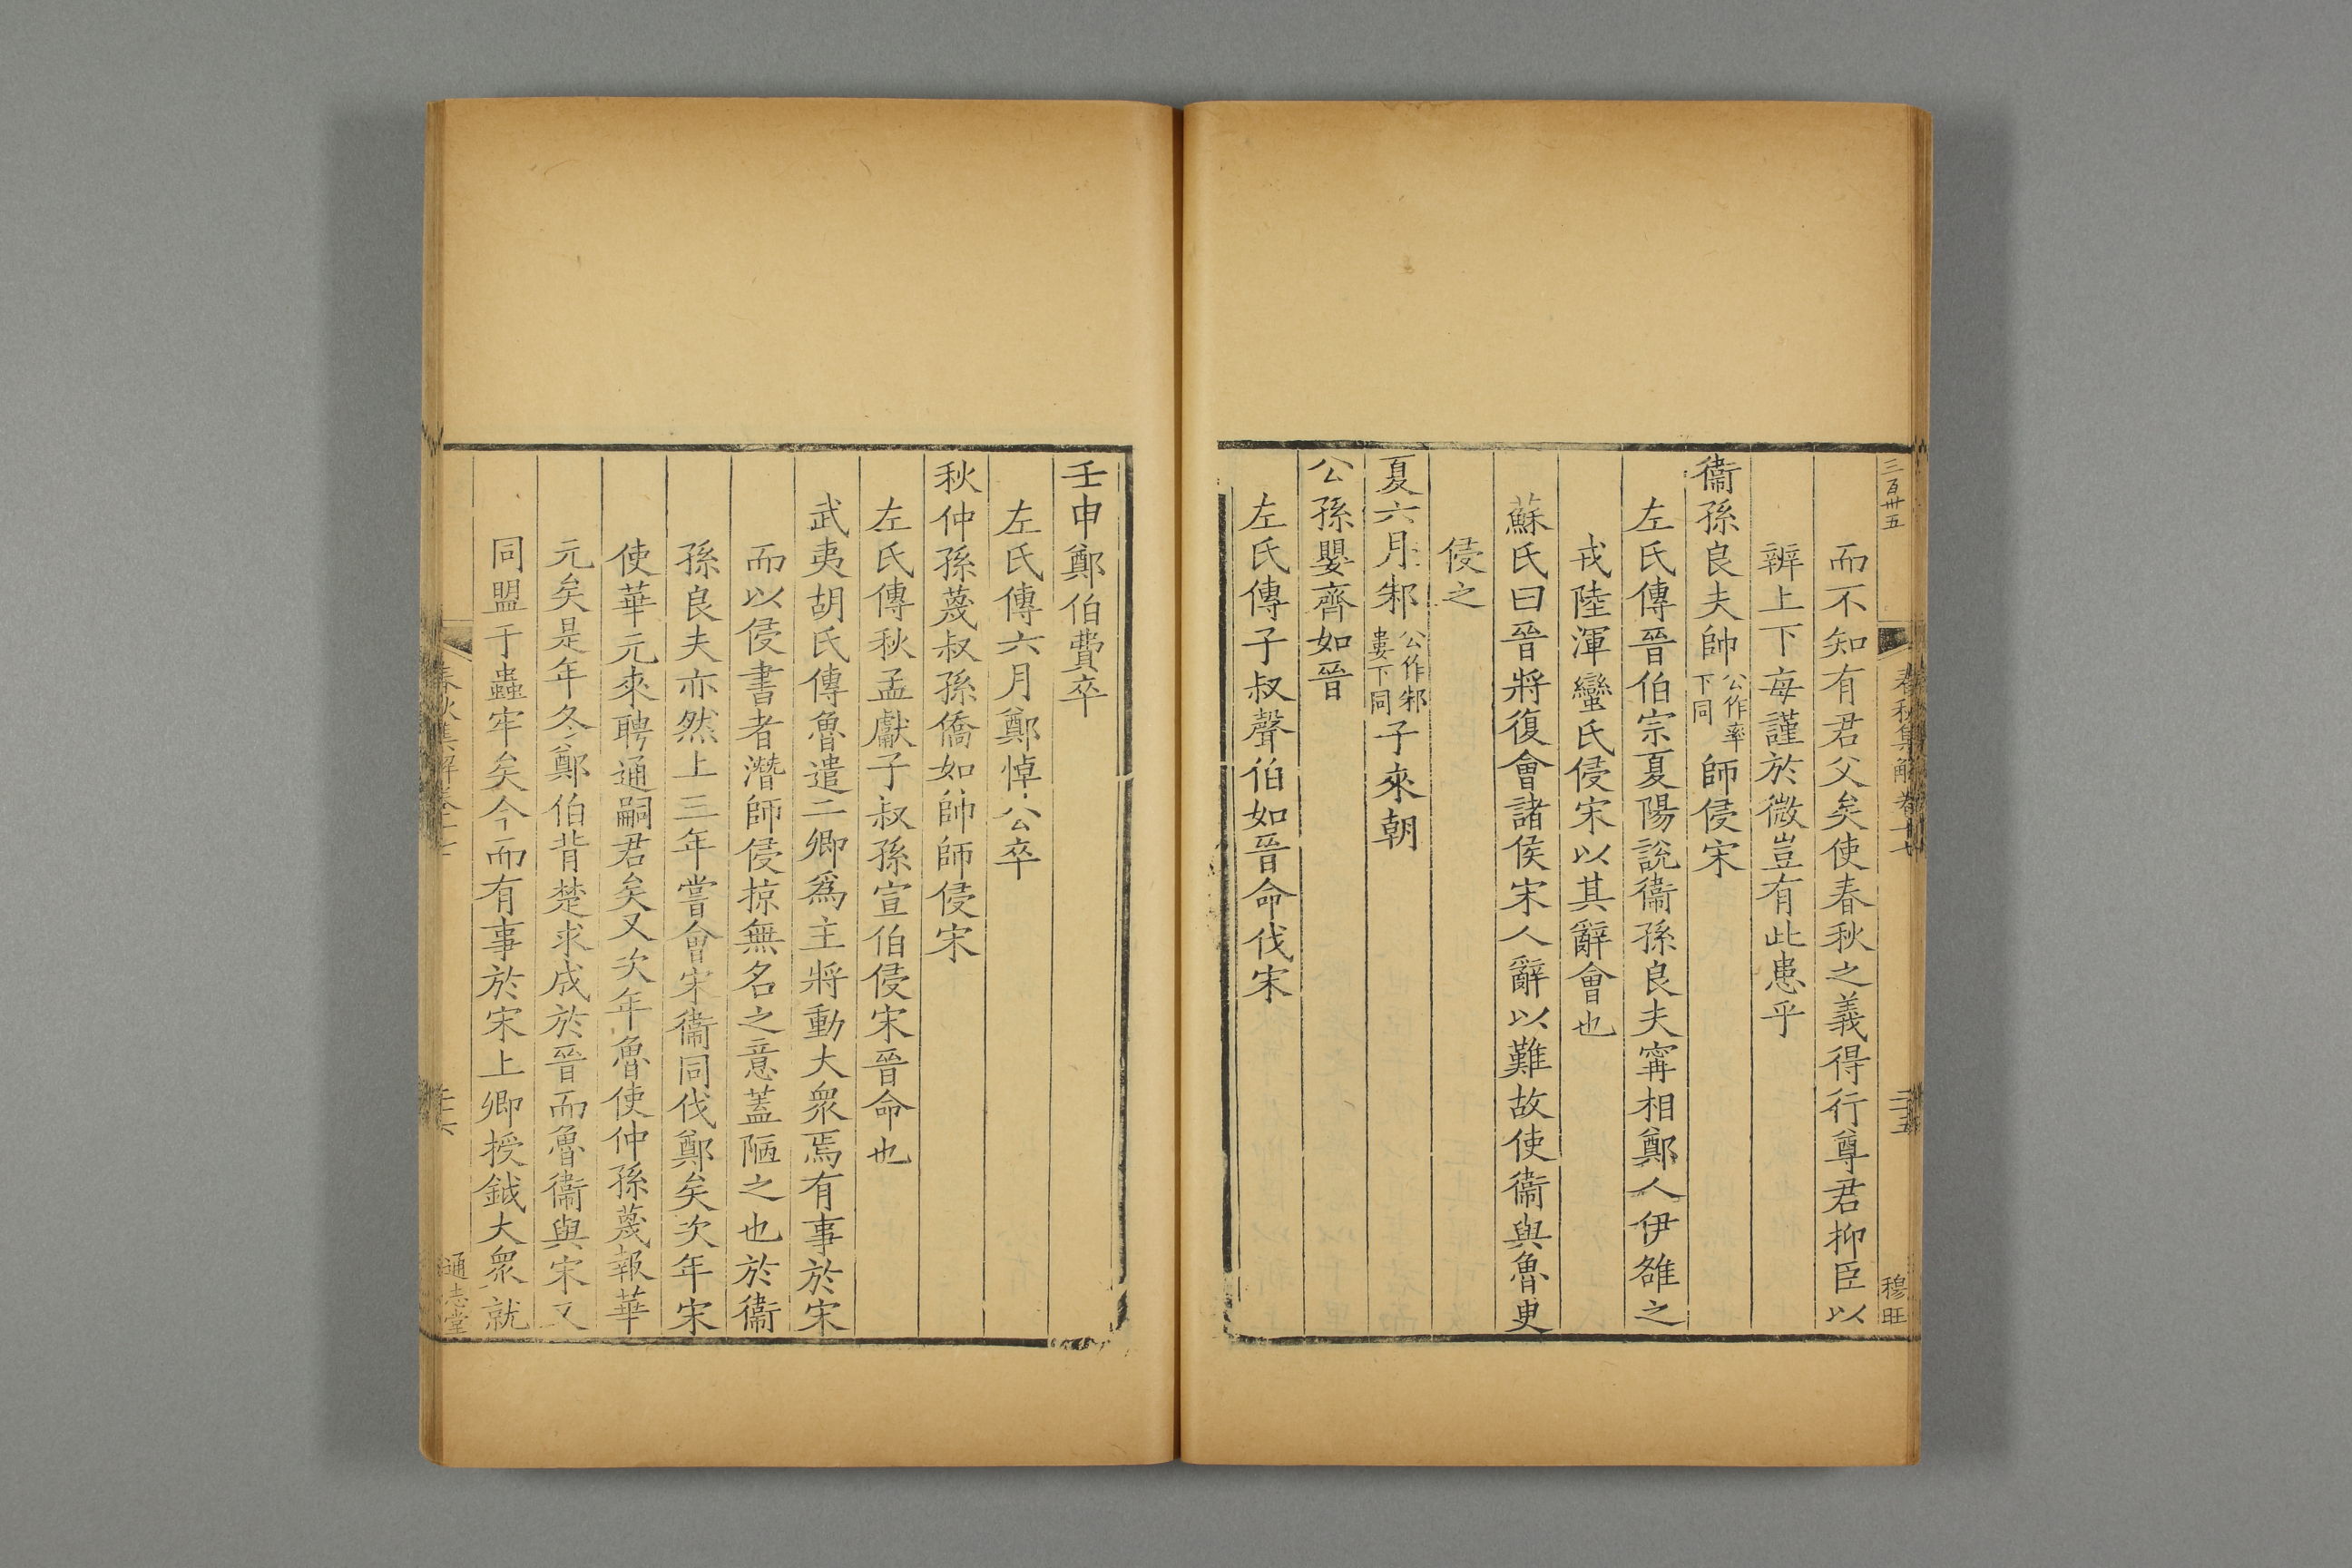 三百卅五
春秋集解卷十七
二十五
穆旺
而不知有君父矣使春秋之義得行尊君抑臣以
辨上下每謹於微豈有此患乎
衞孫良夫帥公作率下同師侵宋
左氏傳晉伯宗夏陽說衞孫良夫甯相鄭人伊雒之
戎陸渾蠻氏侵宋以其辭會也
蘇氏曰晉將復會諸侯宋人辭以難故使衞與魯更
侵之
夏六月邾公作邾婁下同子來朝
公孫嬰齊如晉
左氏傳子叔聲伯如晉命伐宋
壬申鄭伯費卒
左氏傳六月鄭悼公卒
秋仲孫蔑叔孫僑如帥師侵宋
左氏傳秋孟獻子叔孫宣伯侵宋晉命也
武夷胡氏傳魯遣二卿爲主將動大衆焉有事於宋
而以侵書者潛師侵掠無名之意蓋陋之也於衞
孫良夫亦然上三年嘗會宋衞同伐鄭矣次年宋
使華元來聘通嗣君矣又次年魯使仲孫蔑報華
元矣是年冬鄭伯背楚求成於晉而魯衞與宋又
同盟于蟲牢矣今而有事於宋上卿授鉞大衆就
春秋集解卷十七
通志堂